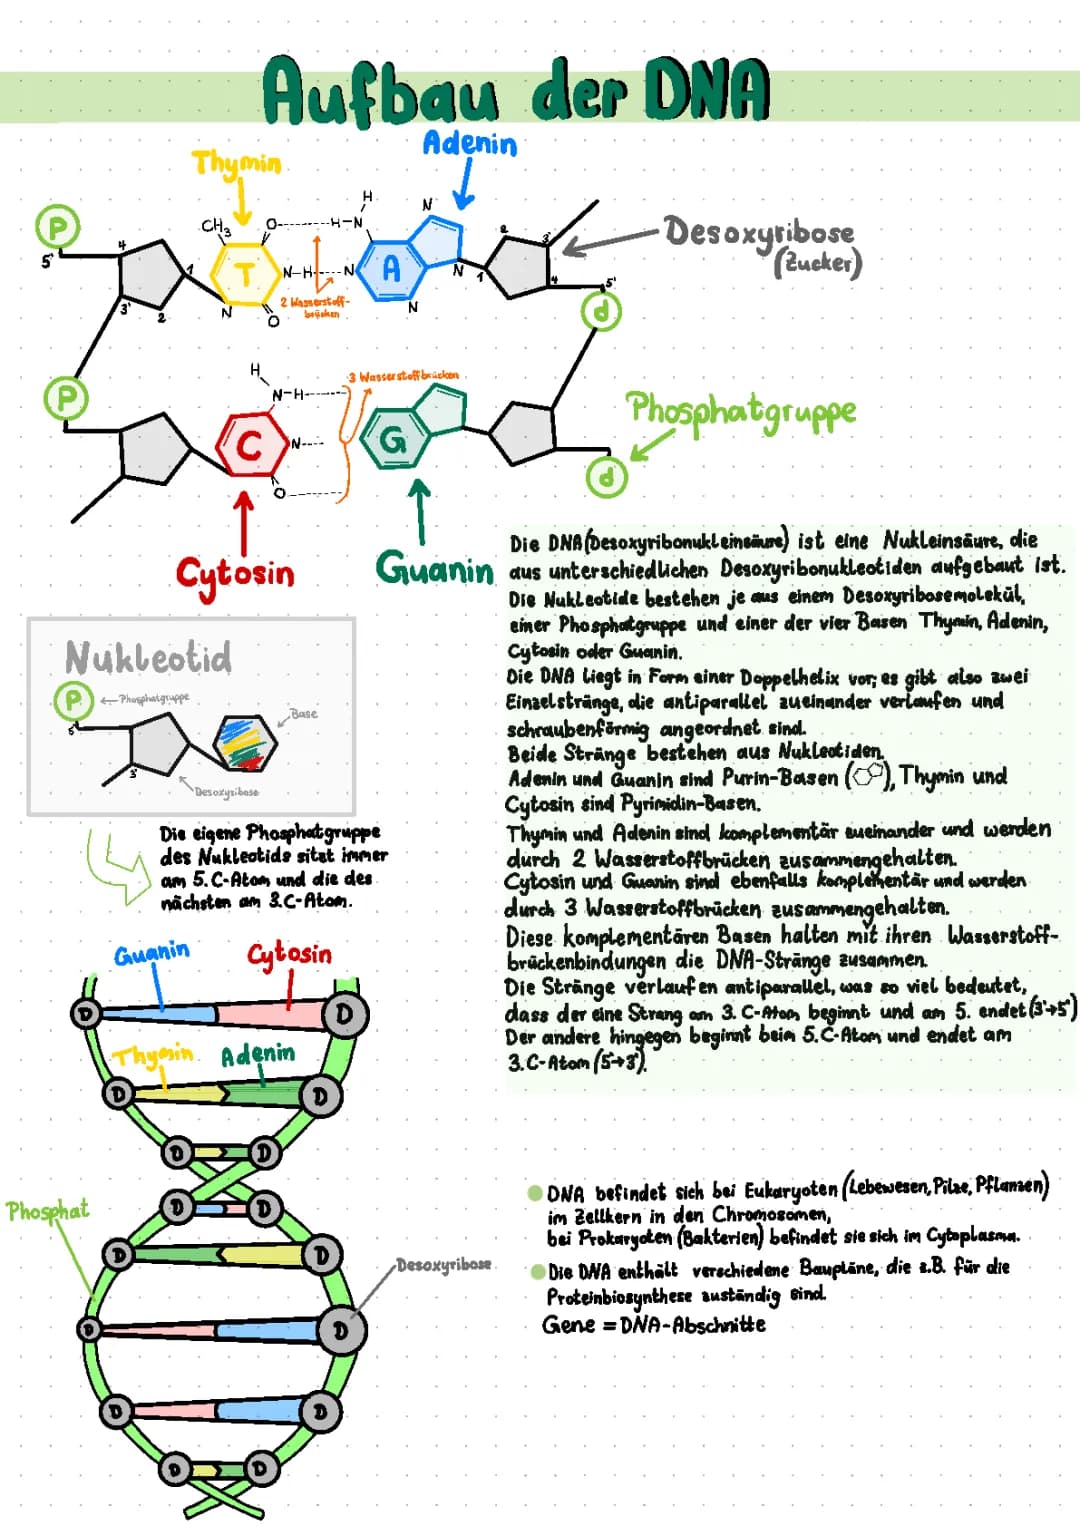 Aufbau der DNA
Thymin
Adenin
P
5'
4
1
3'
2
CH₃
T
N
O
O
N-H
H
H-N
N
A
N
N
N
2 Wasserstoff-
brücken
2
3'
1
4
5'
d
Desoxyribose
(Zucker)
P
H
N-H
3 Wasserstoffbrücken
C
N
O
G
Phosphatgruppe
d
Cytosin
Guanin
Nukleotid
P
Phosphatgruppe
5'
3'
Base
Desoxyribose
Die eigene Phosphatgruppe
des Nukleotids sitzt immer
am 5. C-Atom und die des
nächsten am 3.C-Atom.
Die DNA (Desoxyribonukleinsäure) ist eine Nukleinsäure, die
aus unterschiedlichen Desoxyribonukleotiden aufgebaut ist.
Die Nukleotide bestehen je aus einem Desoxyribosemolekül,
einer Phosphatgruppe und einer der vier Basen Thymin, Adenin,
Cytosin oder Guanin.
Die DNA liegt in Form einer Doppelhelix vor; es gibt also zwei
Einzelstränge, die antiparallel zueinander verlaufen und
schraubenförmig angeordnet sind.
Beide Stränge bestehen aus Nukleotiden.
Adenin und Guanin sind Purin-Basen ( ), Thymin und
Cytosin sind Pyrimidin-Basen.
Thymin und Adenin sind komplementär zueinander und werden
durch 2 Wasserstoffbrücken zusammengehalten.
Cytosin und Guanin sind ebenfalls komplementär und werden
durch 3 Wasserstoffbrücken zusammengehalten.
Diese komplementären Basen halten mit ihren Wasserstoff-
brückenbindungen die DNA-Stränge zusammen.
Die Stränge verlaufen antiparallel, was so viel bedeutet,
dass der eine Strang am 3. C-Atom beginnt und am 5. endet (3'→5')
Der andere hingegen beginnt beim 5. C-Atom und endet am
3. C-Atom (5'→3').
Guanin
Cytosin
D
D
Thymin
Adenin
D
D
D
D
Phosphat
D
D
D
D
Desoxyribose
D
D
D
D
D
D
DNA befindet sich bei Eukaryoten (Lebewesen, Pilze, Pflanzen)
im Zellkern in den Chromosomen,
bei Prokaryoten (Bakterien) befindet sie sich im Cytoplasma.
Die DNA enthält verschiedene Baupläne, die z.B. für die
Proteinbiosynthese zuständig sind.
Gene = DNA-Abschnitte